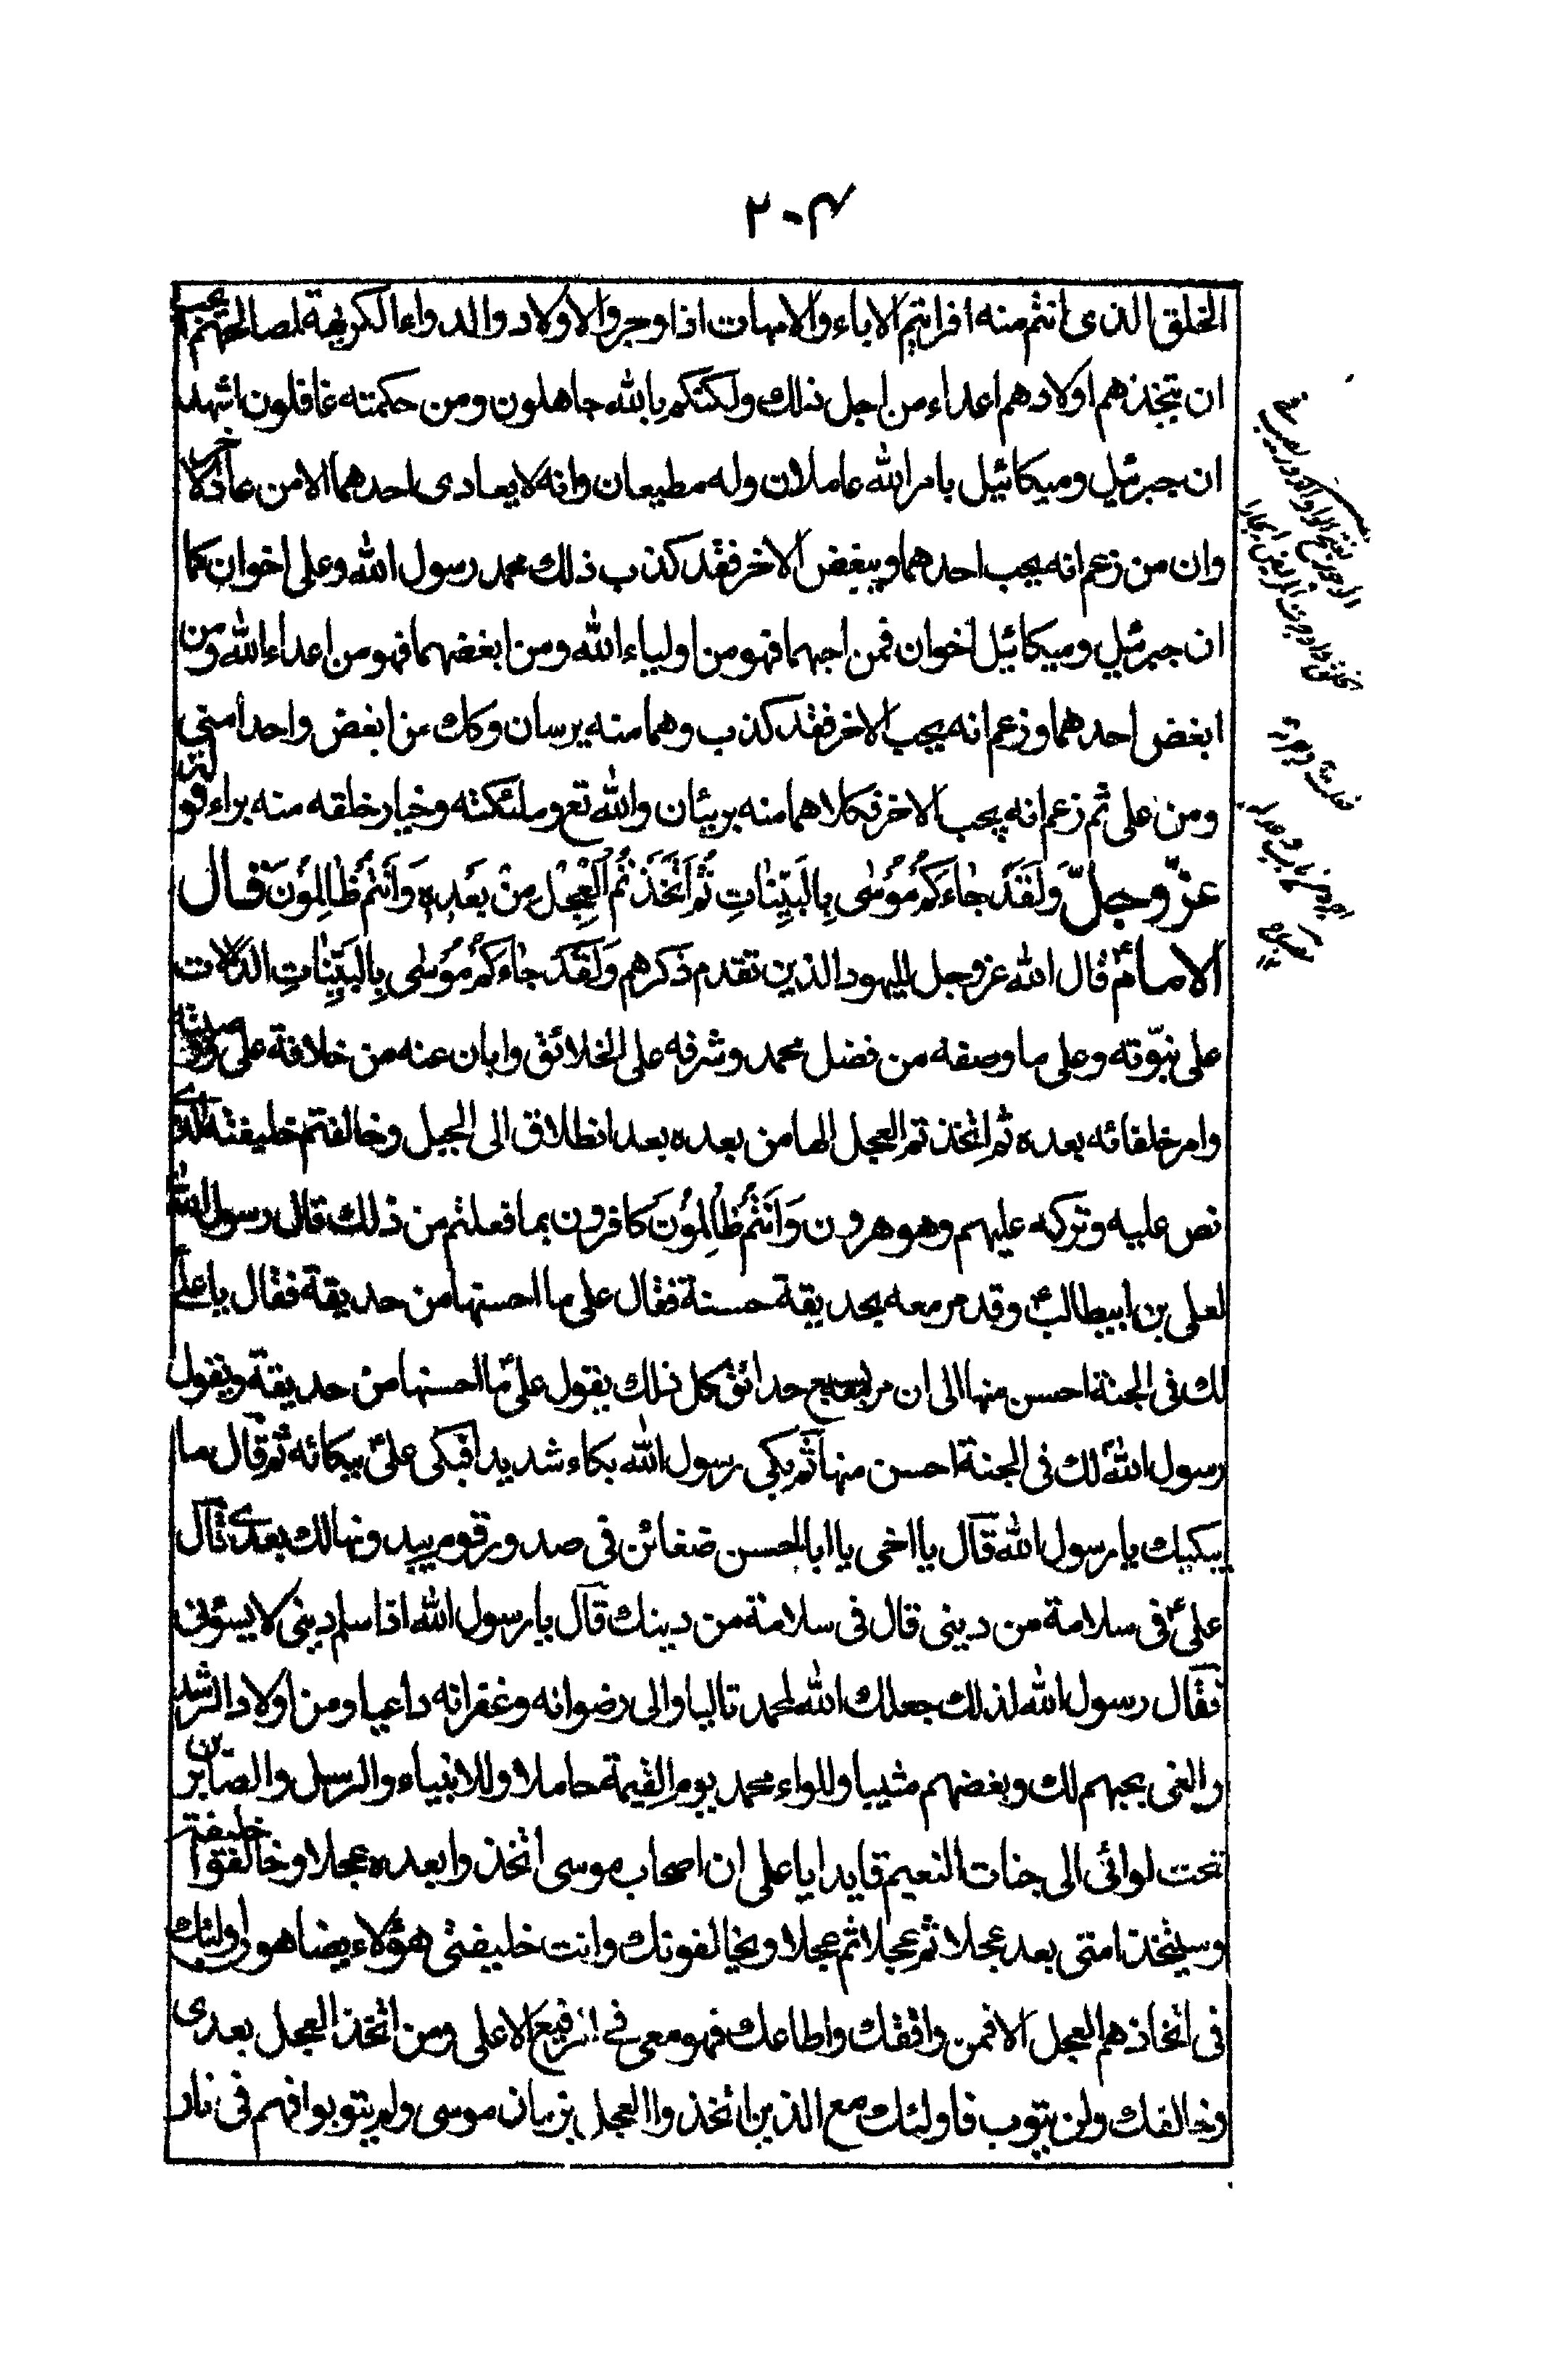 ٢٠٤
الخلق الذى انتم منه افرايتم الاباء والامهات اذا اوجروا الاولاد والدواء الكريهة لمصالحهم ايجب
ان يتخذهم اولادهم اعداء من اجل ذلك ولكنكم بالله جاهلون ومن حكمته غافلون اشهد
ان جبرئيل وميكائيل بامر الله عاملان وله مطيعان وانه لا يعادى احدهما الا من عادى الاخر
وان من زعم انه يحب احدهما ويبغض الاخر فقد كذب ذلك محمد رسول الله وعلى اخوان كما
ان جبرئيل وميكائيل اخوان فمن احبهما فهو من اولياء الله ومن ابغضهما فهو من اعداء الله ومن
ابغض احدهما وزعم انه يحب الاخر فقد كذب وهما منه بريئان وكك من ابغض واحدا منى
ومن على ثم زعم انه يحب الاخر فكلاهما منه بريئان والله تع وملئكته وخيار خلقه منه براء قوله
عزّ وجلّ وَلَقَدْ جٰاءَكُمْ مُوسٰى بِالْبَيِّنٰاتِ ثُمَّ اتَّخَذْتُمُ الْعِجْلَ مِنْ بَعْدِهِ وَاَنْتُمْ ظٰالِمُونَ قال
الامامؑ قال الله عز وجل لليهود الذين تقدم ذكرهم وَلَقَدْ جٰاءَكُمْ مُوسٰى بِالْبَيِّنٰاتِ الدلالات
على نبوّته وعلى ما وصفه من فضل محمد وشرفه على الخلائق وابان عنه من خلافة على ووصيته
وامر خلفائه بعده ثم اتخذتم العجل الها من بعده بعد انطلاق الى الجبل وخالفتم خليفته الذى
نص عليه وتركه عليهم وهو هرون وَاَنْتُمْ ظٰالِمُونَ كافرون بما فعلتم من ذلك قال رسول الله
لعلى بن ابيطالبؑ وقد مر معه بحديقة حسنة فقال على ما احسنها من حديقة فقال يا على
لك فى الجنة احسن منها الى ان مر بسبع حدائق كل ذلك يقول علىؑ ما احسنها من حديقة ويقول
رسول الله لك فى الجنة احسن منها ثم بكى رسول الله بكاء شديدا فبكى علىؑ ببكائه ثم قال ما
يبكيك يا رسول الله قال يا اخى يا ابا الحسن ضغائن فى صدور قوم يبدونها لك بعدى قال
علىؑ فى سلامة من دينى قال فى سلامة من دينك قال يا رسول الله اذا سلم دينى لا يسؤنى
فقال رسول الله لذلك جعلك الله لمحمد تاليا والى رضوانه وغفرانه داعيا ومن اولاد الرشد
والغى بحبهم لك وبغضهم منبيا وللواء محمد يوم القيمة حاملا وللانبياء والرسل والصابرين
تحت لوائى الى جنات النعيم قايدا يا على ان اصحاب موسى اتخذوا بعده عجلا وخالفوا خليفته
وسيتخذ امتى بعد عجلا ثم عجلا ثم عجلا ويخالفونك وانت خليفتى هؤلاء يضاهون اولئك
فى اتخاذهم العجل الا فمن وافقك واطاعك فهو معى فى الرفيع الاعلى ومن اتخذ العجل بعدى
وخالفك ولن يتوب فاولئك مع الذين اتخذوا العجل زمان موسى ولم يتوبوا فهم فى نار